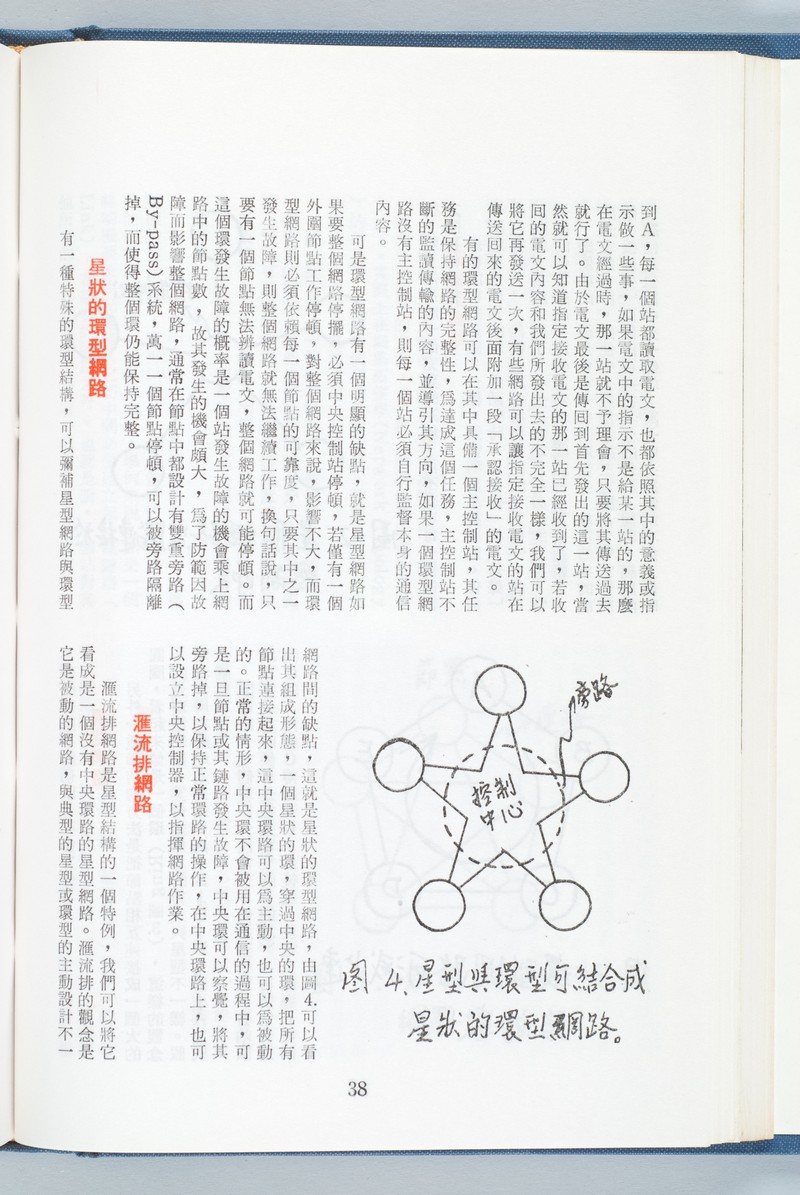 到A，每一個站都讀取電文，也都依照其中的意義或指
示做一些事，如果電文中的指示不是給某一站的，那麼
在電文經過時，那一站就不予理會，只要將其傳送過去
就行了。由於電文最後是傳回到首先發出的這一站，當
然就可以知道指定接收電文的那一站已經收到了，若收
回的電文內容和我們所發出去的不完全一樣，我們可以
將它再發送一次，有些網路可以讓指定接收電文的站在
傳送回來的電文後面附加一段「承認接收」的電文。
有的環型網路可以在其中具備一個主控制站，其任
務是保持網路的完整性，爲達成這個任務，主控制站不
斷的監讀傳輸的內容，並導引其方向，如果一個環型網
路沒有主控制站，則每一個站必須自行監督本身的通信
內容。
可是環型網路有一個明顯的缺點，就是星型網路如
果要整個網路停擺，必須中央控制站停頓，若僅有一個
外圍節點工作停頓，對整個網路來說，影響不大，而環
型網路則必須依賴每一個節點的可靠度，只要其中之一
發生故障，則整個網路就無法繼續工作，換句話說，只
要有一個節點無法辨讀電文，整個網路就可能停頓。而
這個環發生故障的概率是一個站發生故障的機會乘上網
路中的節點數，故其發生的機會頗大，爲了防範因故
障而影響整個網路，通常在節點中都設計有雙重旁路（
By-pass）系統，萬一一個節點停頓，可以被旁路隔離
掉，而使得整個環仍能保持完整。
星狀的環型網路
有一種特殊的環型結構，可以彌補星型網路與環型
旁路
控制
中心
图 4.星型與環型可結合成
星狀的環型網路。
網路間的缺點，這就是星狀的環型網路，由圖4.可以看
出其組成形態，一個星狀的環，穿過中央的環，把所有
節點連接起來，這中央環路可以爲主動，也可以爲被動
的。正常的情形，中央環不會被用在通信的過程中，可
是一旦節點或其鏈路發生故障，中央環可以察覺，將其
旁路掉，以保持正常環路的操作，在中央環路上，也可
以設立中央控制器，以指揮網路作業。
滙流排網路
滙流排網路是星型結構的一個特例，我們可以將它
看成是一個沒有中央環路的星型網路。滙流排的觀念是
它是被動的網路，與典型的星型或環型的主動設計不一
38